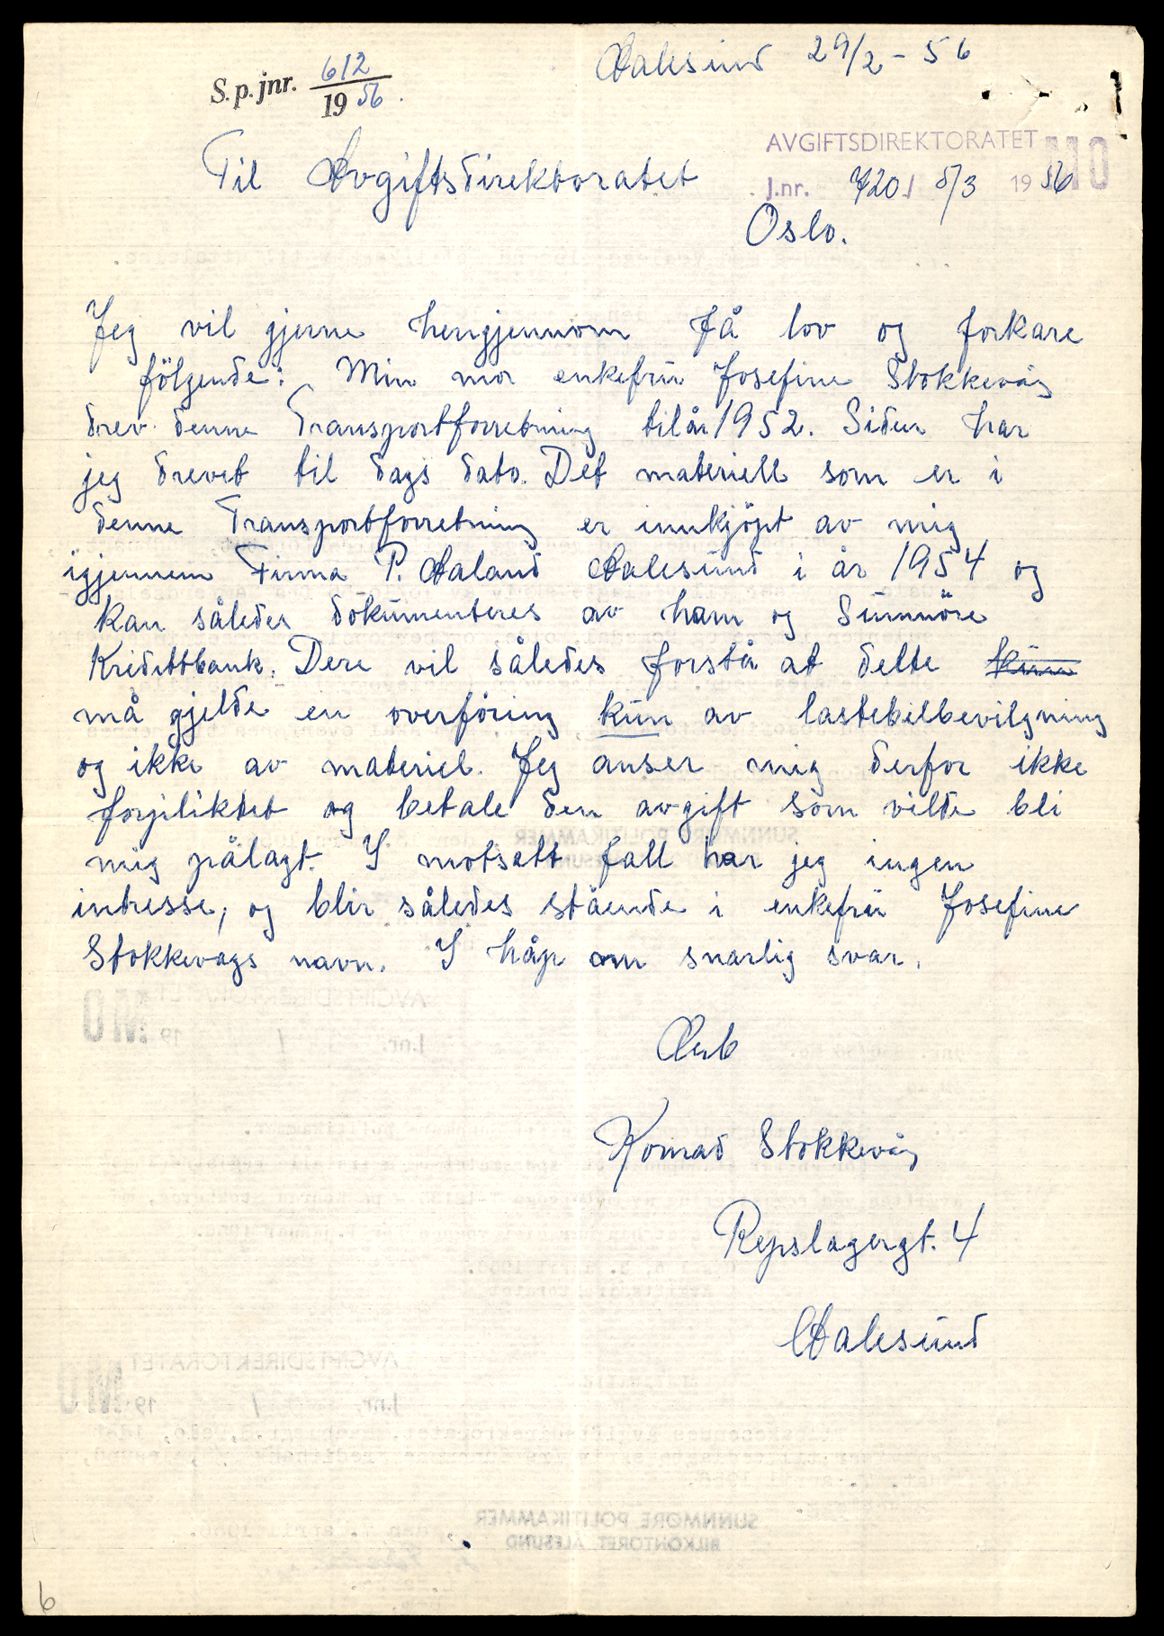 S.p.jnr. 612
19 56.
Aalesund 29/2 - 56
AVGIFTSDIREKTORATET
J.nr. 7201 5/3 1956
Til Avgiftsdirektoratet
Oslo.
Jeg vil gjerne herigjennom få lov og forkare
følgende: Min mor enkefrü Josefine Stokkevåg
drev denne Transportforretning til år 1952. Siden har
jeg drevet til dags dato. Det materiell som er i
denne Transportforretning er innkjöpt av mig
igjennem Firma P. Aaland Aalesund i år 1954 og
kan således dokumenteres av ham og Sunnmöre
Kredittbank. Dere vil således forstå at dette kun
må gjelde en overföring kun av lastebilbevilgning
og ikke av materiel. Jeg anser mig derfor ikke
forpliktet og betale den avgift som vilde bli
mig pålagt. I motsatt fall har jeg ingen
intresse, og blir således stående i enkefrü Josefine
Stokkevågs navn. I håp om snarlig svar.
Ærb
Konrad Stokkevåg
Repslagergt. 4
Aalesund
6